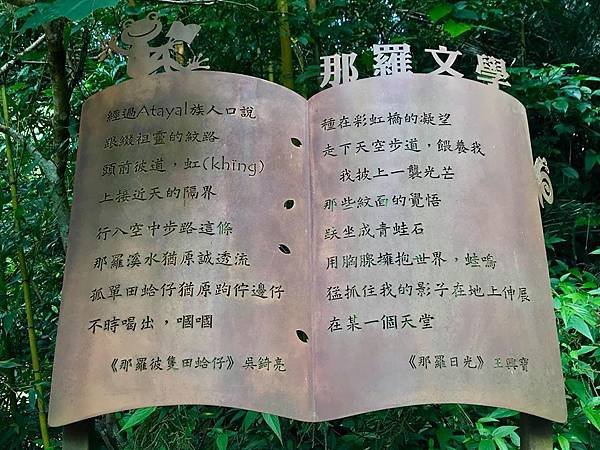 那羅文學
經過Atayal族人口說
跟綴祖靈的紋路
頭前彼道，虹(khīng)
上接近天的隔界
行八空中步路這條
那羅溪水猶原誠透流
孤單田蛤仔猶原跔佇邊仔
不時喝出，嘓嘓
《那羅彼隻田蛤仔》吳錡亮
種在彩虹橋的凝望
走下天空步道，餵養我
我披上一襲光芒
那些紋面的覺悟
趺坐成青蛙石
用胸膛擁抱世界，蛙鳴
猛抓住我的影子在地上伸展
在某一個天堂
《那羅日光》王興寶